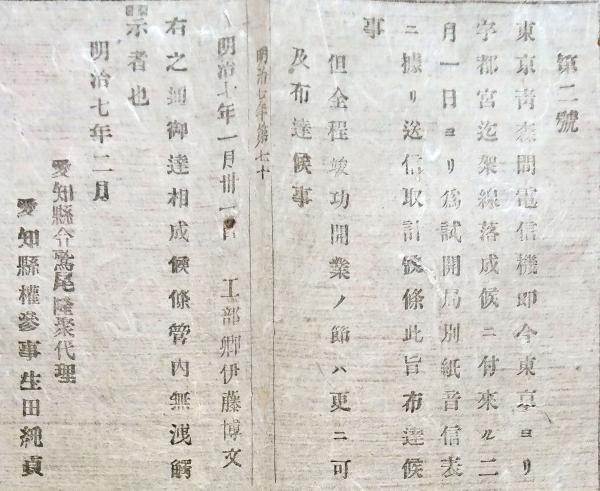 第二號
東京青森間電信機即今東京ヨリ
宇都宮迄架線落成候ニ付來ル二
月一日ヨリ爲試開局別紙音信表
ニ據リ送信取計候條此旨布達候
事
但全程竣功開業ノ節ハ更ニ可
及布達候事
明治七年第七十
明治七年一月卅一日 工部卿伊藤博文
右之通御達相成候條管内無洩觸
示者也
明治七年二月
愛知縣令鷲尾隆聚代理
愛知縣權參事生田純貞